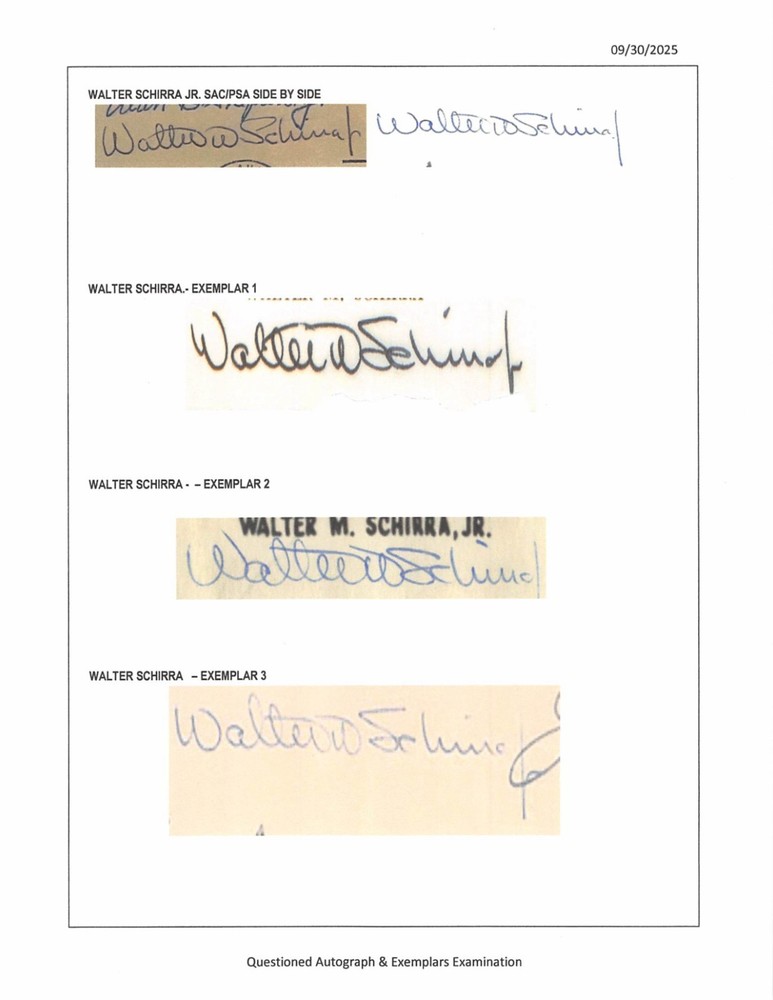 09/30/2025
WALTER SCHIRRA JR. SAC/PSA SIDE BY SIDE
Walter M Schirra Jr Walter M Schirra Jr
WALTER SCHIRRA.- EXEMPLAR 1
Walter M Schirra Jr
WALTER SCHIRRA - – EXEMPLAR 2
WALTER M. SCHIRRA, JR.
Walter M Schirra
WALTER SCHIRRA – EXEMPLAR 3
Walter M Schirra
Questioned Autograph & Exemplars Examination